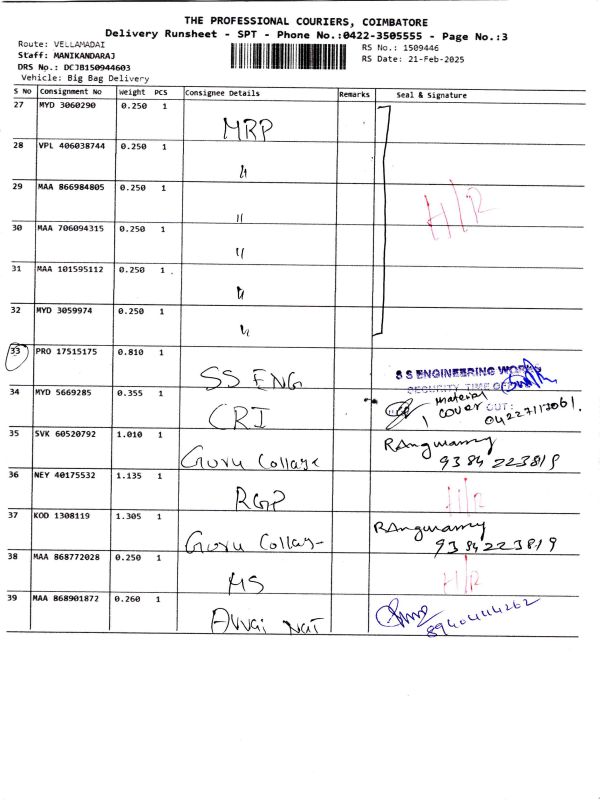 THE PROFESSIONAL COURIERS, COIMBATORE
Delivery Runsheet - SPT - Phone No.:0422-3505555 - Page No.:3
Route: VELLAMADAI
Staff: MANIKANDARAJ
DRS No.: DCJB150944603
Vehicle: Big Bag Delivery
RS No.: 1509446
RS Date: 21-Feb-2025
S No Consignment No Weight PCS Consignee Details Remarks Seal & Signature
27 MYD 3060290 0.250 1 MRP
28 VPL 406038744 0.250 1 "
29 MAA 866984805 0.250 1 "
H/R
30 MAA 706094315 0.250 1 "
31 MAA 101595112 0.250 1 "
32 MYD 3059974 0.250 1 "
33 PRO 17515175 0.810 1 SS ENG
S S ENGINEERING WORKS
SECURITY TIME OF
34 MYD 5669285 0.355 1 CRI
material
1 cover OUT:
35 SVK 60520792 1.010 1 Guru Collage
9384223819
36 NEY 40175532 1.135 1 RGP H/R
37 KOD 1308119 1.305 1 Guru Collag-
9384223819
38 MAA 868772028 0.250 1 MS H/R
39 MAA 868901872 0.260 1 Avvai NAT
8940444262